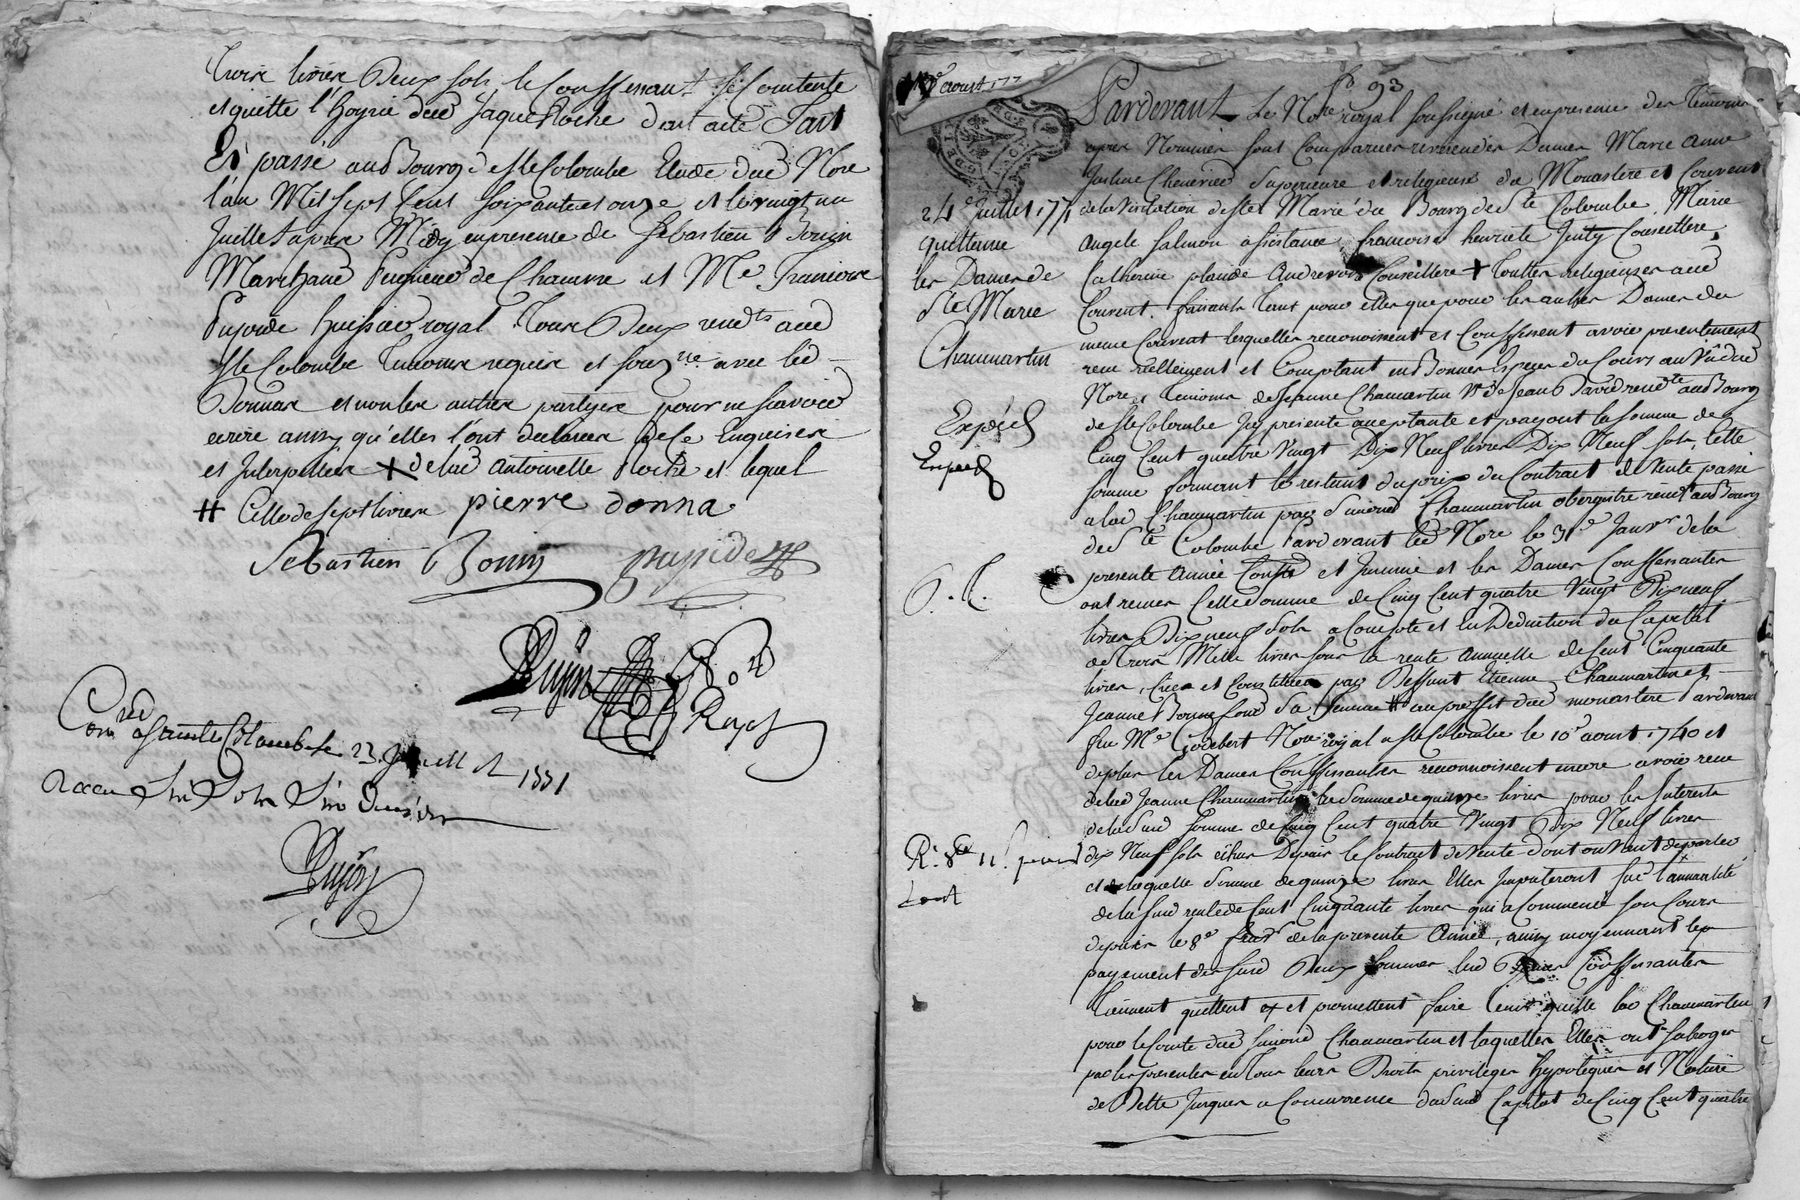 Trois livres Deux sols le Confessant se Contente
et quitte l'hoyrie dud Jaque Roche dont acte Fait
Et passé aud Bourg de Ste Colombe Etude dud Nore
l'an Mil sept Cent soixante et onze et le vingt un
Juillet apres Midy en presence de Sébastien Bouin
Marchand Peigneur de Chanvre et Me Francois
huissier royal Tous Deux rendts aud
Ste Colombe Temoins requis et sousnés avec led
Donnas et non les autres partyes pour ne scavoir
ecrire ainsy qu'elles l'ont declarées de Ce Enquises
et Interpellées + de lad antoinette Roche et lequel
# Celle de sept livres pierre donna
Sebastien Bouin
Dujin
Roy
Con a Sainte Colombe le 23 Juillet 1771
Dujin
aoust 177
fo 93
Pardevant Le Nore royal soussigné et en presence des Temoins
apres Nommés sont Comparues reverendes Dames Marie anne
Justine Superieure et religieuse du Monastere et Couvent
24e Juillet 1771
de la Visitation de Ste Marie du Bourg de Ste Colombe, Marie
quittance
angele Salmon assistance francoise henriete Conseillere,
les Dames de
Catherine Conseillere + Toutes religieuses aud
Ste Marie
Couvent. faisants Tant pour elles que pour les autres Dames du
Chaumartin
meme Couvent lesquelles reconnoissent et Confessent avoir presentement
receu réellement et Comptant en Bonnes Especes du Cours au Vu dud
Nore et Temoins de Jeanne Chaumartin Ve de Jean David rendte aud Bourg
Expéd
de Ste Colombe Icy presente acceptante et payant la somme de
Cinq Cent quatre Vingt Dix Neuf livres Dix Neuf sols Cette
somme formant le restant du prix du Contrat de Vente passé
a lad Chaumartin par Simond Chaumartin rendt aud Bourg
de Ste Colombe Pardevant led Nore le 31e Janvr de la
presente Année Controllé et Insinué et les Dames Confessantes
ont receu Cette Somme de Cinq Cent quatre Vingt Dix neuf
livres Dix neuf Sols a Compte et En Deduction du Capital
de Trois Mille livres sous la rente Annuelle de Cent Cinquante
livres, Créée et Constituée par Deffunt Etienne Chaumartin et
Jeanne Bonnefond Sa femme # au proffit dud monastere Pardevant
feu Me Godebert Nore royal a Ste Colombe le 10e aoust 1740 et
deplus les Dames Confessantes reconnoissent encore avoir receu
de lad Jeanne Chaumartin la Somme de quinze livres pour les Interets
de la Susd somme de Cinq Cent quatre Vingt Dix Neuf livres
dix Neuf sols échus Depuis le Contrat de Vente dont on Vient de parler
et de laquelle Somme de quinze livres Elles Imputeront sur l'annuallité
de la Susd rente de Cent Cinquante livres qui a Commencé son Cours
depuis le 8e fevr de la presente Année, ainsy moyennant les
payement des susd Deux Sommes lesd Dames Confessantes
Tiennent quittent et promettent faire Tenir quitte lad Chaumartin
pour le Compte dud Simond Chaumartin et laquelle Elles ont Subrogée
par les presentes en Tous leurs Droits privileges hypoteques et Nature
de Dette Jusques a Concurrence dud Susd Capital de Cinq Cent quatre